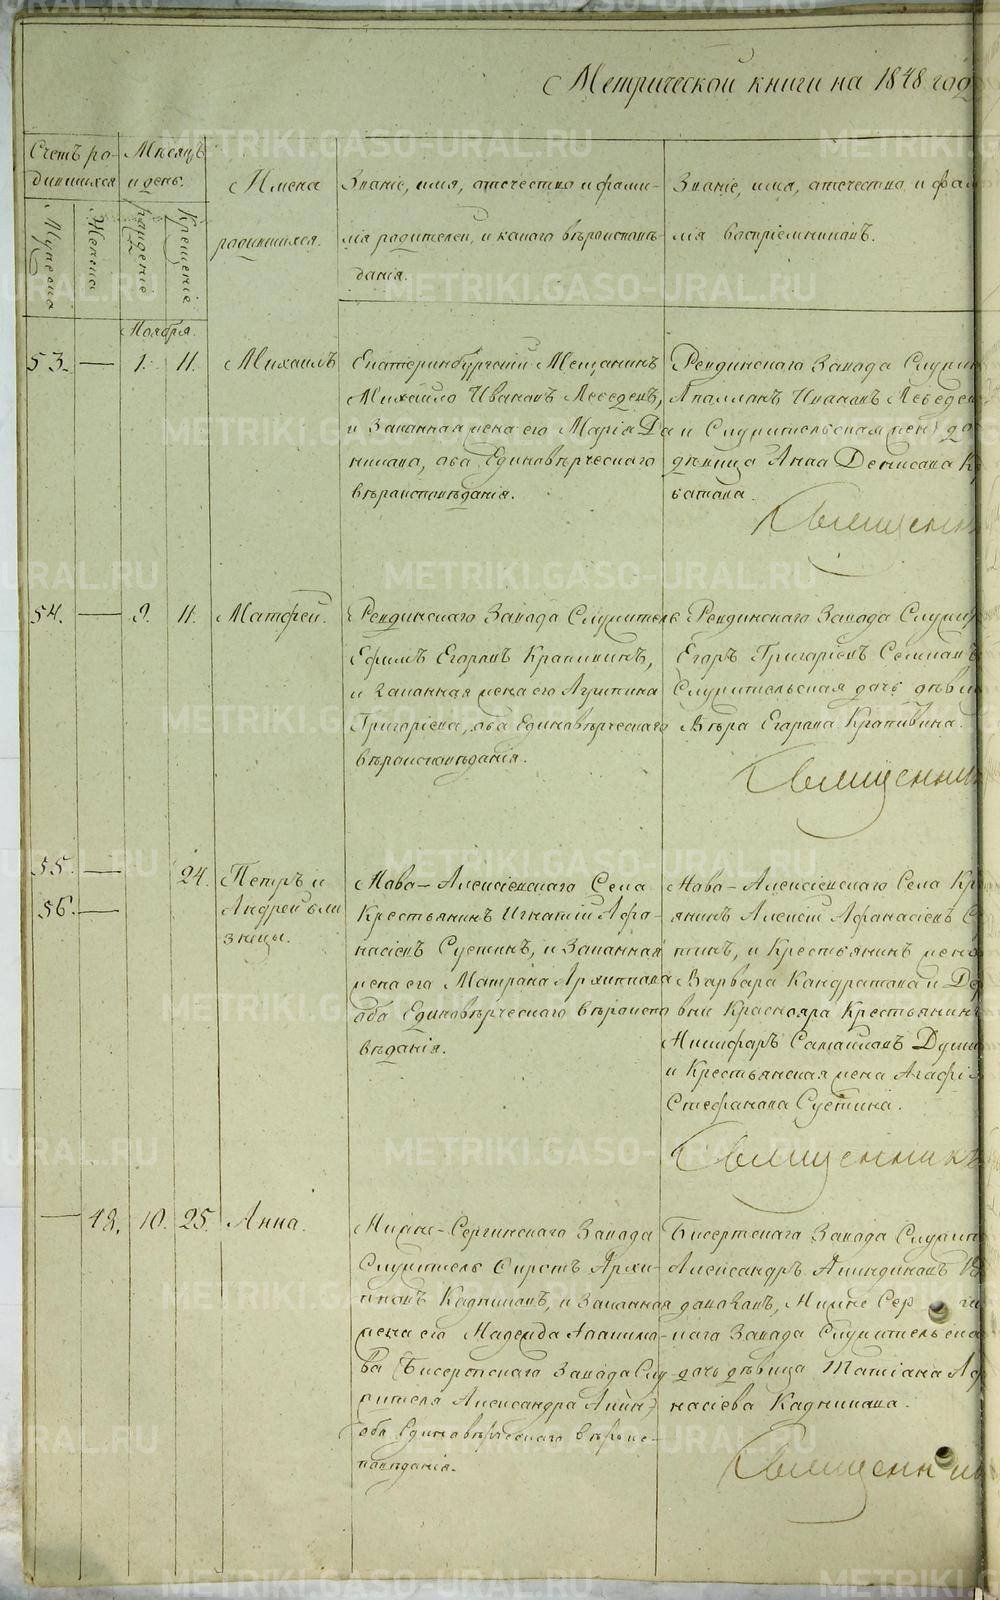 Метрической книги на 1848 год
Счетъ ро-
дившихся
Мѣсяцъ
и день.
Имена
родившихся.
Званіе, имя, отечество и фами-
лія родителей, и какого вѣроисповѣ-
данія.
Званіе, имя, отечество и фами
лія воспріемниковъ.
Мужеска
Женска
рожденіе
Крещеніе
Ноября.
53. — 1. 11. Михаилъ
Екатеринбургскій Мещанинъ
Михайло Ивановъ Лебедевъ,
и Законная жена его Марія Да
нилова, оба Единовѣрческаго
вѣроисповѣданія.
Ревдинскаго Завода Служи
Аполлонъ Ивановъ Лебеде
и Служительская жен до
дѣвица Анна Денисова К
батова.
Священни
54. — 9. 11. Матфей.
Ревдинскаго Завода Служитель
Ефимъ Егоровъ Крапивинъ,
и Законная жена его Агрипина
Григоріева, оба Единовѣрческаго
вѣроисповѣданія.
Ревдинскаго Завода Служи
Егоръ Григоріевъ Селиван
Служительская дочь дѣви
Вѣра Егорова Крапивина.
Священник
55. —
56. —
24. Петръ и
Андрей бли
знецы.
Ново-Алексіевскаго Села
Крестьянинъ Игнатій Афо-
насіевъ Суетинъ, и Законная
жена его Матрона Архиппова
оба Единовѣрческаго вѣроиспо
вѣданія.
Ново-Алексіевскаго Села Кр
янинъ Алексій Афанасіевъ С
тинъ, и Крестьянинъ жена
Варвара Кондратова и Де
вни Краснояра Крестьянин
Никифоръ Самойловъ Д
и Крестьянская жена Агафі
Стефанова Суетина.
Священникъ
— 48. 10. 25. Анна.
Нижне-Сергинскаго Завода
Служитель Сиротъ Архи-
повъ Кадниковъ, и Законная
жена его Надежда
ва (Бисертскаго Завода Слу
жителя Александра
оба Единовѣрческаго вѣроис-
повѣданія.
Бисертскаго Завода Служит
Александръ
Нижне Сер ги
нскаго Завода Служительска
дочь дѣвица Татіана Аф
насіева Кадникова.
Священник
METRIKI.GASO-URAL.RU